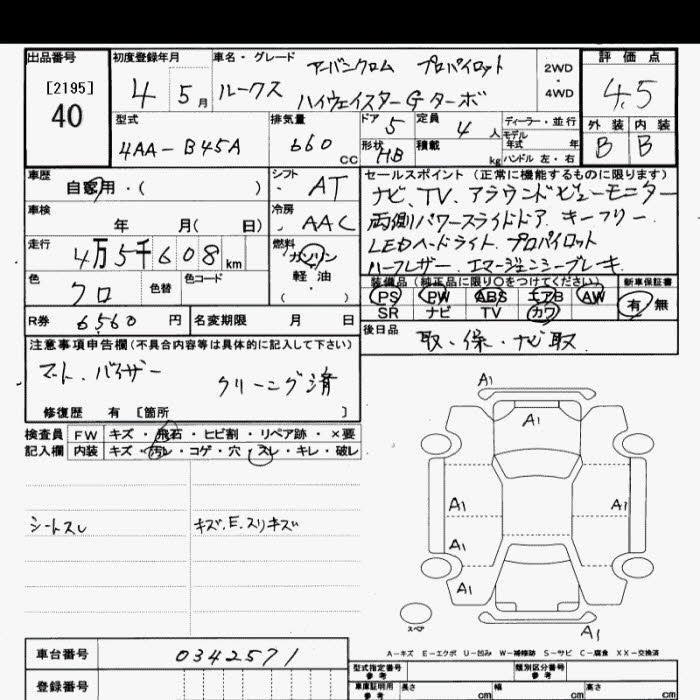 出品番号 初度登録年月 車名・グレード アーバンクロム プロパイロット 2WD 評価点
[2195] 4 5月 ルークス ハイウェイスターGターボ ・ 4.5
40 4WD
型式 排気量 ドア 5 定員 4人 ディーラー・並行 外装 内装
4AA-B45A 660 cc 形状 HB 積載 kg モデル年式 年 B B
ハンドル 左・右
車歴 シフト セールスポイント (正常に機能するものに限ります)
自家用・( ) AT ナビ、TV、アラウンドビューモニター
車検 冷房 両側パワースライドドア キーフリー
年 月( 日) AAC LEDヘッドライト、プロパイロット
走行 燃料 ハーフレザー エマージェンシーブレーキ
4万5千608km ガソリン
色 色替 色コード 軽・油 装備品 (純正品に限り○をつけてください) 新車保証書
クロ ・( ) PS PW ABS エアB AW 有・無
SR ナビ TV カワ
R券 6560 円 名変期限 月 日 後日品
注意事項申告欄(不具合内容等は具体的に記入して下さい) 取・保・ナビ取
マット、バイザー クリーニング済
修復歴 有 [箇所 ]
検査員 FW キズ・飛石・ヒビ割・リペア跡・×要
記入欄 内装 キズ・汚レ・コゲ・穴・スレ・キレ・破レ
シートスレ キズ、E、スリキズ
A1
A1
A1 A1
A1
A1
スペア A1
A-キズ E-エクボ U-凹み W-補修跡 S-サビ C-腐食 XX-交換済
車台番号 0342571
型式指定番号 参考 類別区分番号 参考
登録番号 車庫証明用 参考 長さ cm 幅 cm 高さ cm